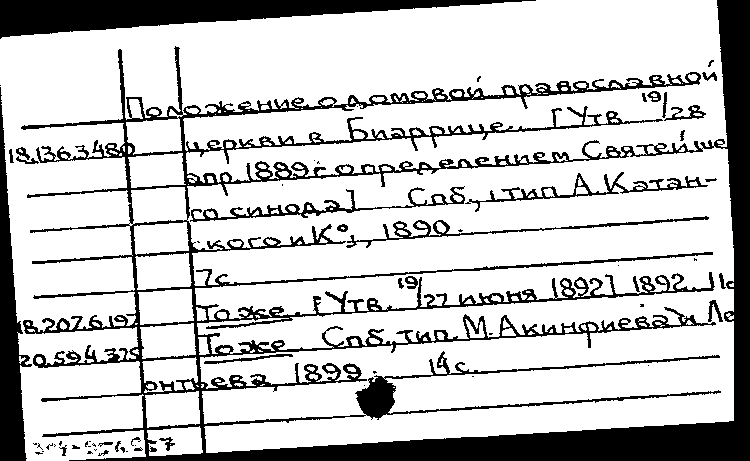 Положение о домовой православной
18.136.3.480 церкви в Биаррице. [Утв. 19/28
апр. 1889 г. определением Святейше
го синода] Спб., тип А. Катан-
ского и К°, 1890.
7 с.
18.207.6.197 Тоже. [Утв. 19/27 июня 1892] 1892.
20.594.325 Тоже Спб., тип. М. Акинфиева и Ле
онтьева, 1899. 14 с.